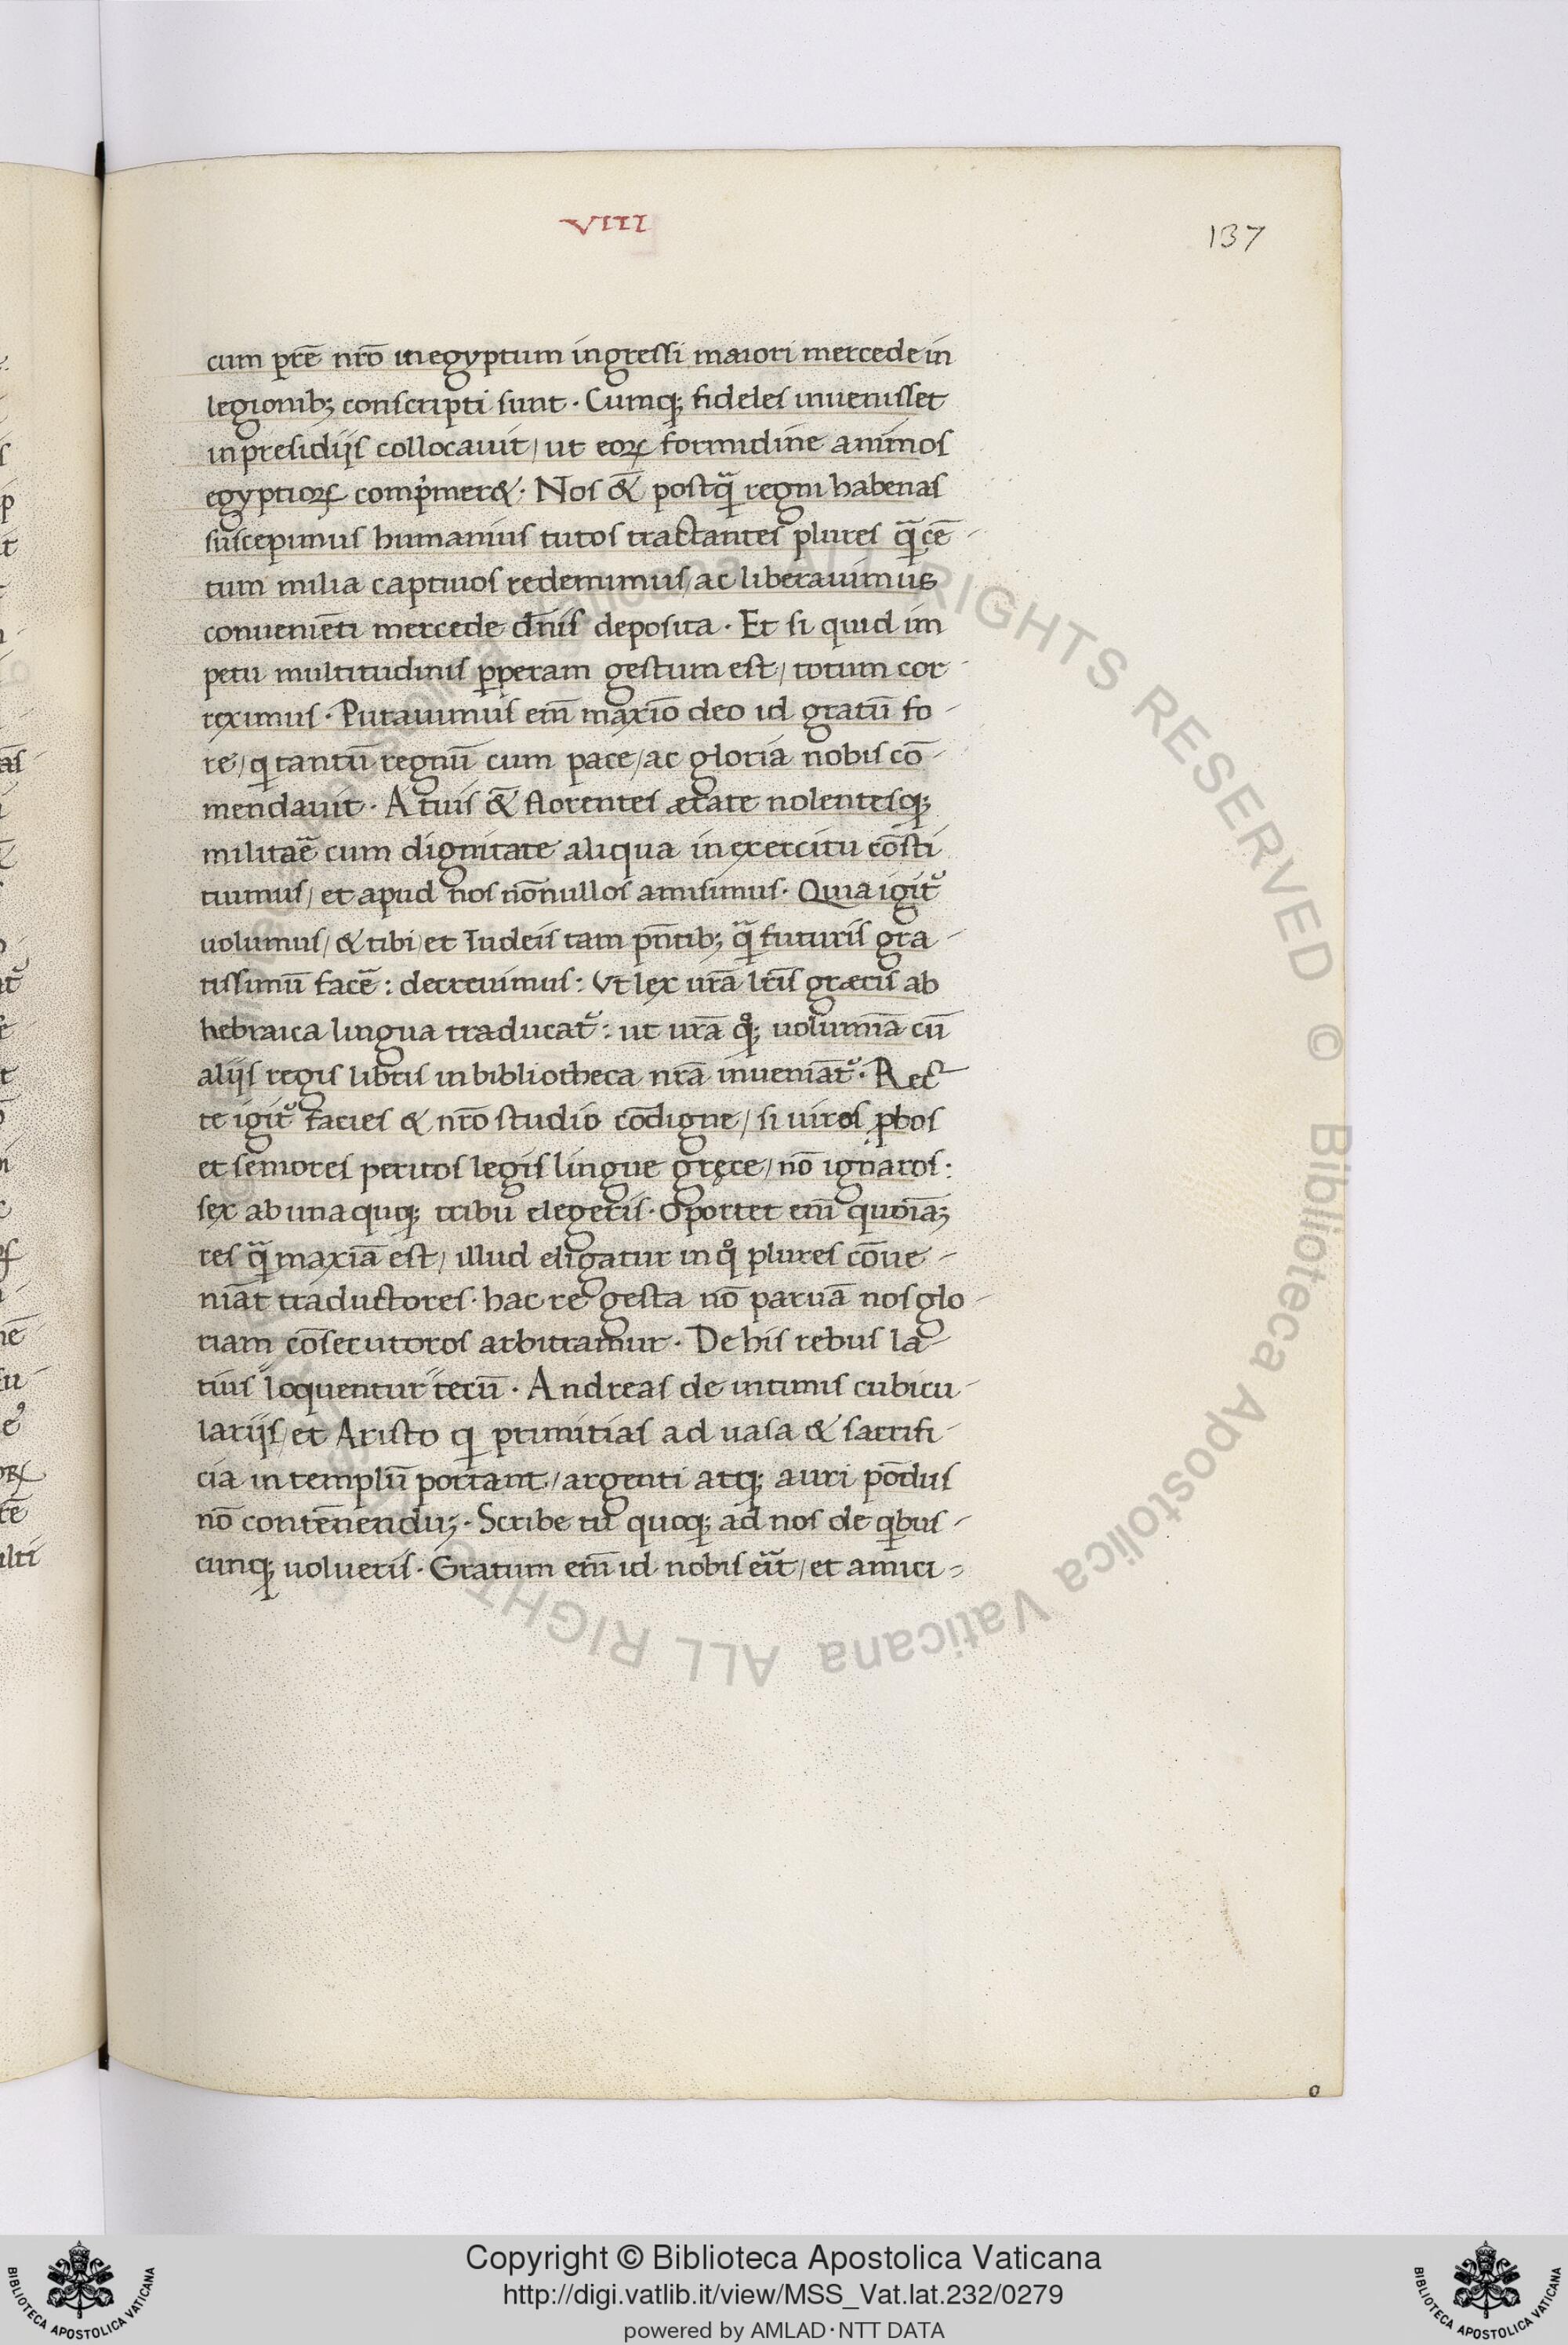 VIII
137
cum pr̄e nr̄o in egyptum ingressi maiori mercede in
legionib; conscripti sunt. Cumq; fideles inuenisset
in presidijs collocauit / ut eoꝝ formidine animos
egyptioꝝ comp̓mer&. Nos &̄ postq̃ regni habenas
suscepimus humanius tutos tractantes plures q̃ cē-
tum milia captiuos redemimus / ac liberauimus
conueniēti mercede dn̄is deposita. Et si quid im
petu multitudinis ꝑperam gestum est / totum cor-
reximus. Putauimus em̄ maxīo deo id gratū fo-
re / qi tantū regnū cum pace / ac gloria nobis cō-
mendauit. A tuis &̄ florentes ætate nolentesq;
militāe cum dignitate aliqua in exercitu cōsti
tuimus / et apud nos nōnullos amisimus. Quia igit᷑
uolumus / & tibi / et Iudeis tam pn̄tib; q̃ futuris gra-
tissimū facē: decreuimus: Vt lex ur̄a lr̄is græcis ab
hebraica lingua traducat᷑: ut ur̄a qͦ; uolumīa cū
alijs regis libris in bibliotheca nr̄a inueniāt᷑. Rec-
te igit᷑ facies & nr̄o studio cōdigne / si uiros ꝓbos
et seniores peritos legis lingue gręce / nō ignaros:
sex ab una quoq; tribu elegeris. Oportet em̄ quoīa;
res q̃ maxīa est / illud eligatur in qͦ plures cōue-
niāt traductores. hac re gesta nō paruā nos glo-
riam cōsecuturos arbitramur. De his rebus la-
tius loquentur tecū. Andreas de intimis cubicu-
larijs / et Aristo qi primitias ad uasa & sacrifi-
cia in templū portant / argenti atq; auri pōdus
nō contēnendu;. Scribe tu quoq; ad nos de qibus-
cunq; uolueris. Gratum em̄ id nobis eit᷑ / et amici=
o
Copyright © Biblioteca Apostolica Vaticana
http://digi.vatlib.it/view/MSS_Vat.lat.232/0279
powered by AMLAD·NTT DATA
BIBLIOTECA APOSTOLICA VATICANA
BIBLIOTECA APOSTOLICA VATICANA
© Biblioteca Apostolica Vaticana ALL RIGHTS RESERVED